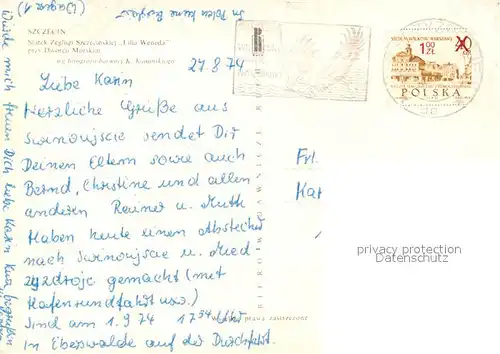 SZCZECIN
Statek Żeglugi Szczecińskiej „Lilla Weneda”
przy Dworcu Morskim
wg fotografii barwnej K. Komorowskiego
27.8.74
Liebe Karin
Herzliche Grüße aus
Swinoujscie sendet Dir
Deinen Eltern sowie auch
Bernd, Christine und allen
anderen Reiner u. Ruth
Haben heute einen Abstecher
nach Swinoujscie u. Mied
zyzdroje gemacht (mit
Hafenrundfahrt usw.)
Sind am 1.9.74 17 34 Uhr
In Eberswalde auf der Durchfahrt.
Würde mich freuen Dich liebe Karin kurz begrüßen
In Polen keine
BIURO WYDAWNICZE
1,00
ZŁ
POLSKA
Frl.
Kar
privacy protection
Datenschutz